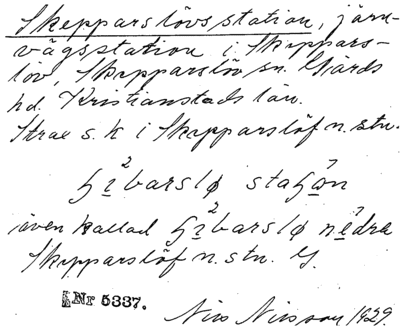 Skepparslövs station, järn-
vägsstation i Skeppars-
löv, Skepparslöv sn. Gärds
hd. Kristianstads län.
Strax s.k i Skepparslöf n. stn.
ꜧi̱²barslø staꜧo̱n
även kallad ꜧi̱²barslø ne̱dra
Skepparslöf n. stn. G.
Nr 5337.
Nils Nilsson 1929.